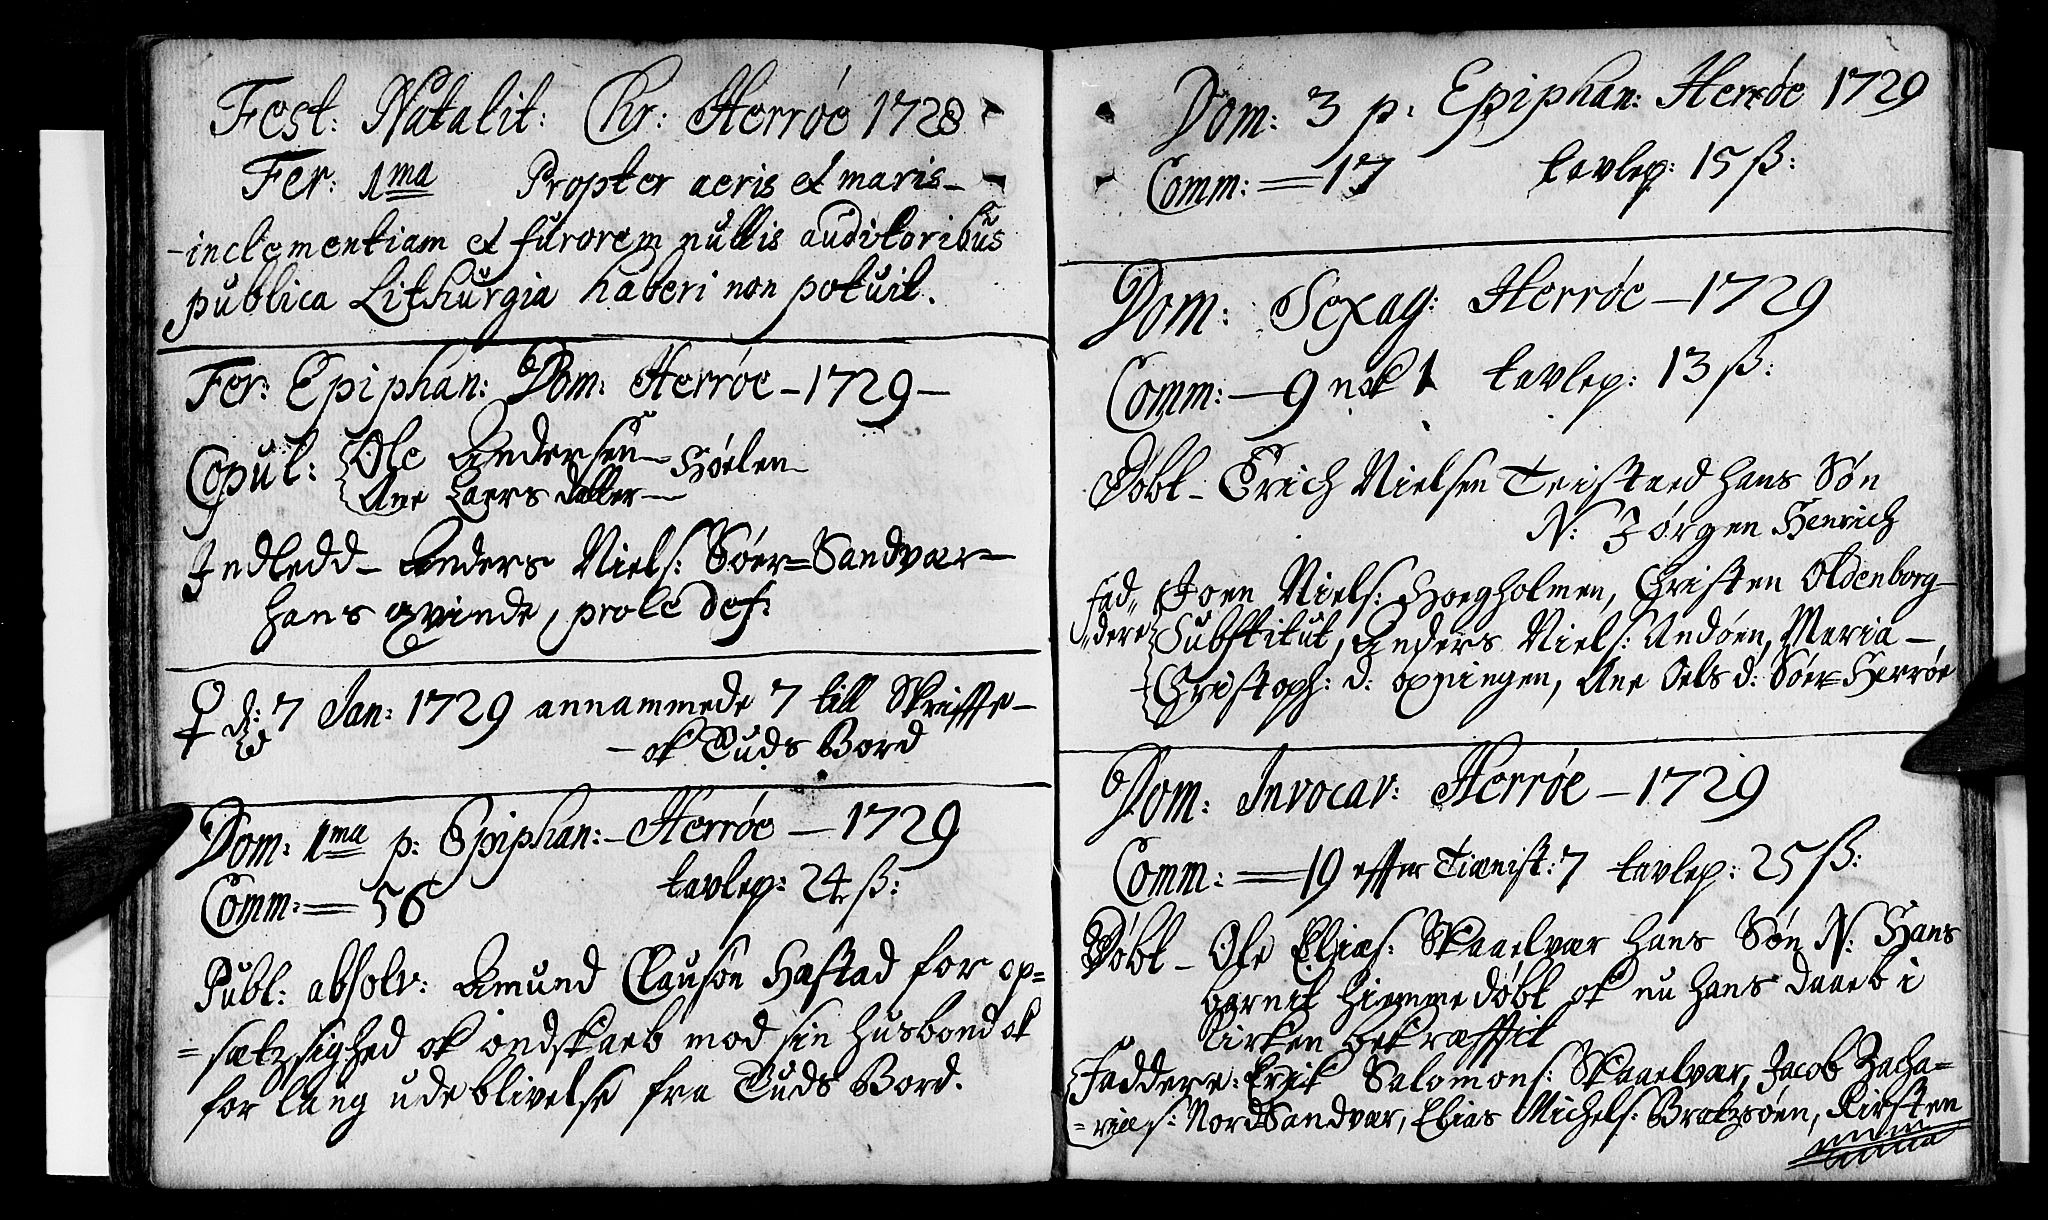 Fest: Natalit: Chr: Herrøe 1728
Fer: 1ma Propter aeris et maris
inclementiam et furorem nullis auditoribus
publica Lithurgia haberi non potuit.
Fer: Epiphan: Dom: Herrøe - 1729 -
Copul: Ole Andersen - Høelen
Ane Laers datter -
Indledd - Anders Niels: Søer=Sandvær
hans qvinde, prole def:
♀ d: 7 Jan: 1729 annammede 7 till Skriffte
- ok Guds Bord
Dom: 1ma p: Epiphan: - Herrøe - 1729
Comm: = 56 tavlep: 24 ß:
Publ: absolv: Amund Clausøn Hastad for op=
=sætzsighed ok ondskaeb mod sin husbond ok
for lang udeblivelse fra Guds Bord.
Dom: 3 p. Epiphan: Herrøe 1729
Comm: = 17 tavlep: 15 ß:
Dom: Sexag: Herrøe - 1729
Comm: - 9 nok 1 tavlep: 13 ß:
Døbt - Erich Nielsen Teistæd hans Søn
N: Jørgen Henrich
Fad„ Joen Niels: Hoegholmen, Christen Oldenborg
„dere Substitut, Anders Niels: Andøen, Maria -
Christoph: d: opningen, Ane Oels d: Søer=Herrøe
Dom: Invocav: Herrøe - 1729
Comm: = 19 effter Tienist: 7 tavlep: 25 ß:
Døbt - Ole Elias: Skaaelvær hans Søn N: Hans
barnit hiemmedøbt ok nu hans daaeb i
Kirken bekræfftit
Faddere: Erik Salomons: Skaaelvær, Jacob Zacha=
=rias: NordSandvær, Elias Michels: Brætzøen, Kirsten